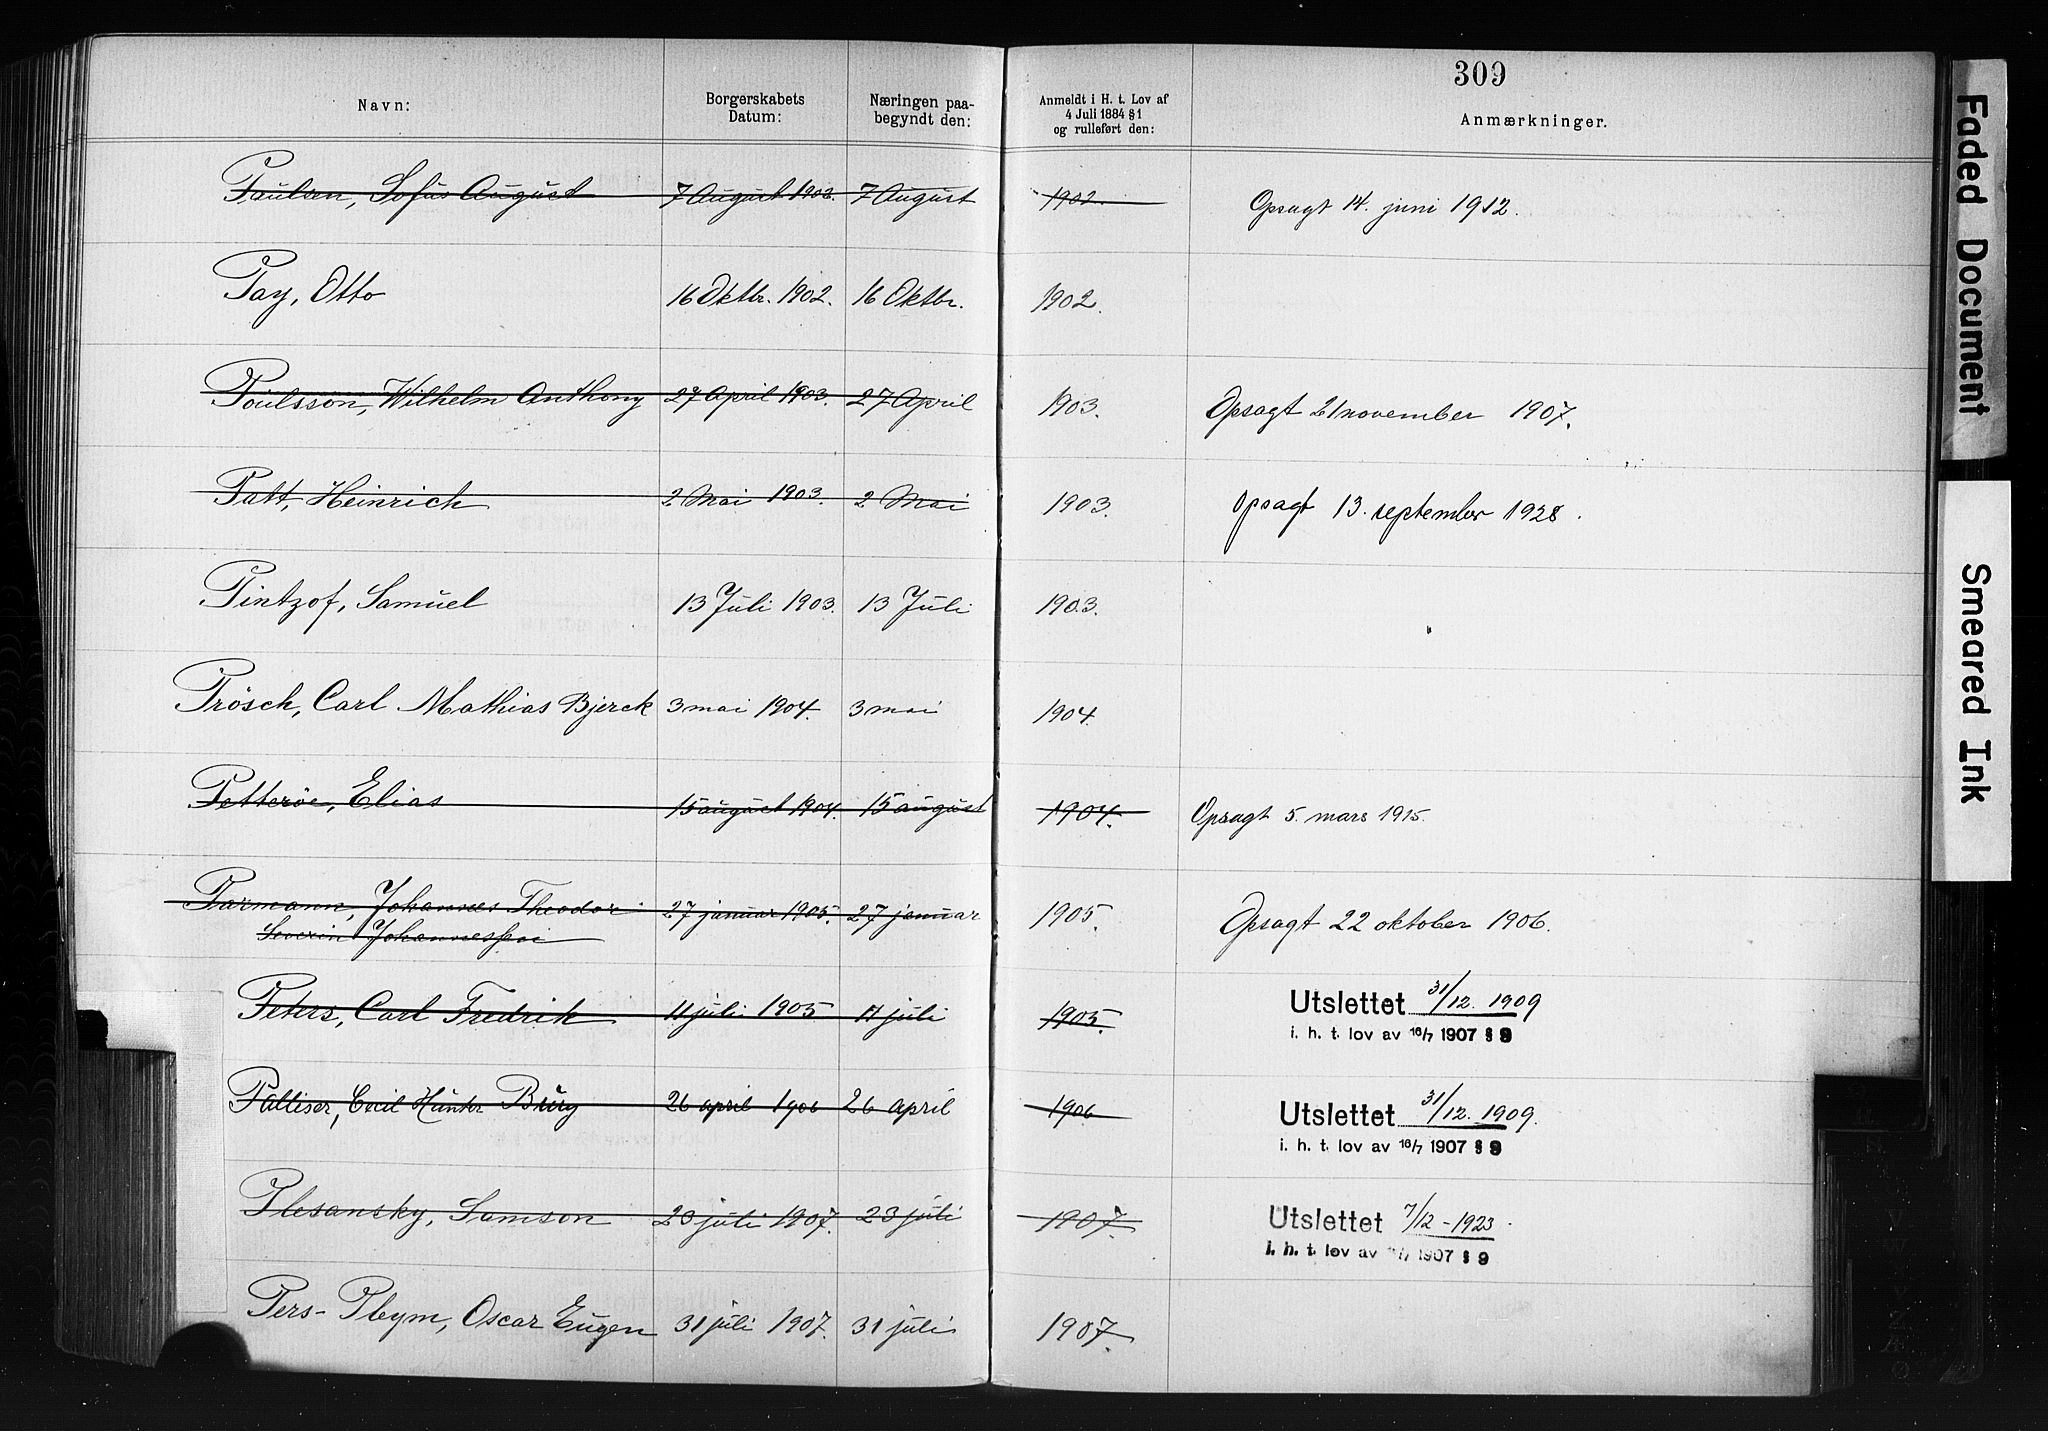 309
Navn: Borgerskabets Datum: Næringen paa-begyndt den: Anmeldt i H. t. Lov af 4 Juli 1884 § 1 og rulleført den: Anmærkninger.
Paulsen, Sofus August 7 August 1902. 7 August 1902. Opsagt 14. juni 1912.
Pay, Otto 16 Oktbr. 1902. 16 Oktbr. 1902.
Poulsson, Wilhelm Anthony 27 April 1903. 27 April 1903. Opsagt 21 november 1907.
Patt, Heinrich 2 Mai 1903. 2 Mai 1903. Opsagt 13. september 1928.
Pintzof, Samuel 13 Juli 1903. 13 Juli 1903.
Prösch, Carl Mathias Bjerck 3 mai 1904. 3 mai 1904.
Petterøe, Elias 15 august 1904. 15 august 1904. Opsagt 5. mars 1915.
Parmann, Johannes Theodor 27 januar 1905. 27 januar 1905. Opsagt 22 oktober 1906.
Severin Johannessen
Peters, Carl Fredrik 11 juli 1905 11 juli 1905. Utslettet 31/12. 1909
i. h. t. lov av 16/7 1907 § 9
Palliser, Cecil Hunter Bury 26 april 1906 26 april 1906 Utslettet 31/12. 1909.
i. h. t. lov av 16/7 1907 § 9
Plesansky, Samson 23 juli 1907. 23 juli 1907. Utslettet 7/12 - 1923.
i. h. t. lov av 16/7 1907 § 9
Pers-Pleym, Oscar Eugen 31 juli 1907. 31 juli 1907.
Faded Document
Smeared Ink